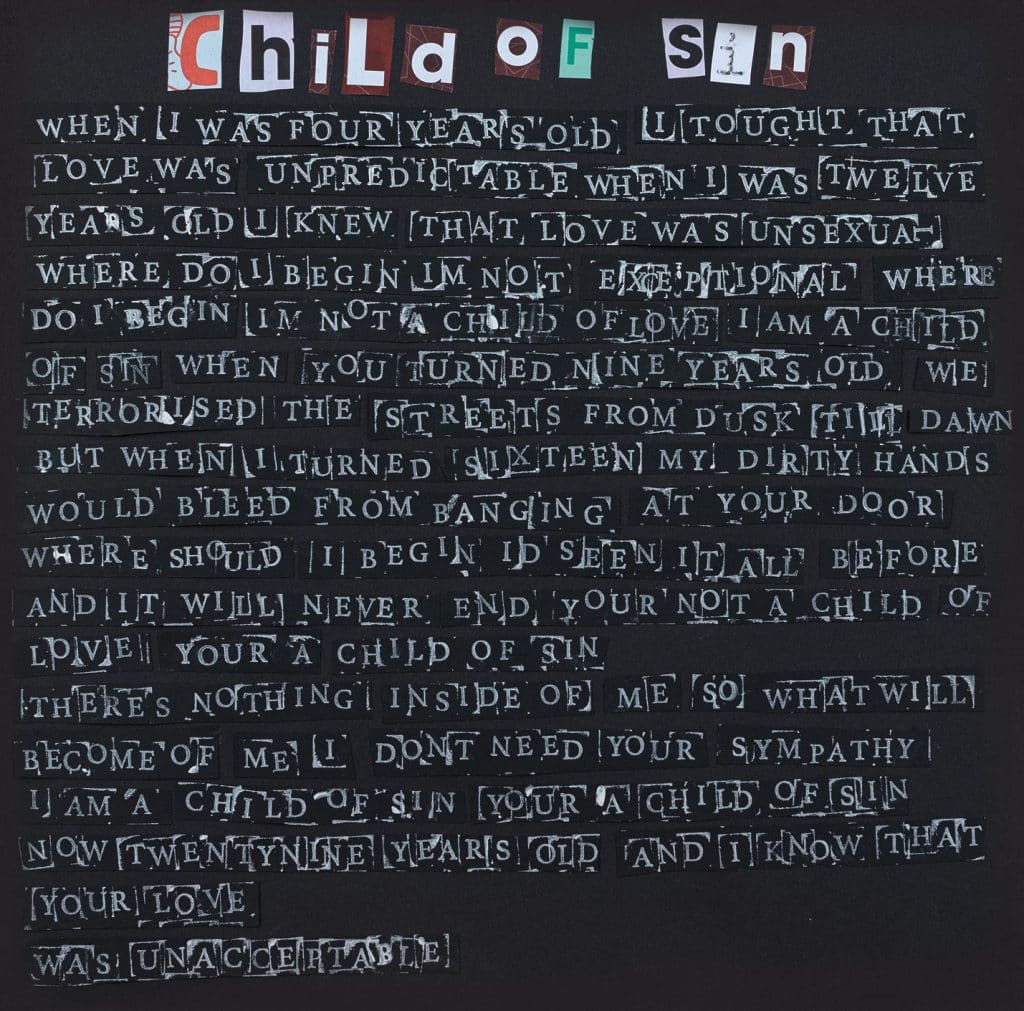 Child of Sin
WHEN I WAS FOUR YEARS OLD I TOUGHT THAT
LOVE WAS UNPREDICTABLE WHEN I WAS TWELVE
YEARS OLD I KNEW THAT LOVE WAS UNSEXUAL
WHERE DO I BEGIN IM NOT EXCEPTIONAL WHERE
DO I BEGIN IM NOT A CHILD OF LOVE I AM A CHILD
OF SIN WHEN YOU TURNED NINE YEARS OLD WE
TERRORISED THE STREETS FROM DUSK TILL DAWN
BUT WHEN I TURNED SIXTEEN MY DIRTY HANDS
WOULD BLEED FROM BANGING AT YOUR DOOR
WHERE SHOULD I BEGIN ID SEEN IT ALL BEFORE
AND IT WILL NEVER END YOUR NOT A CHILD OF
LOVE YOUR A CHILD OF SIN
THERE'S NOTHING INSIDE OF ME SO WHAT WILL
BECOME OF ME I DONT NEED YOUR SYMPATHY
I AM A CHILD OF SIN YOUR A CHILD OF SIN
NOW TWENTYNINE YEARS OLD AND I KNOW THAT
YOUR LOVE
WAS UNACCEPTABLE